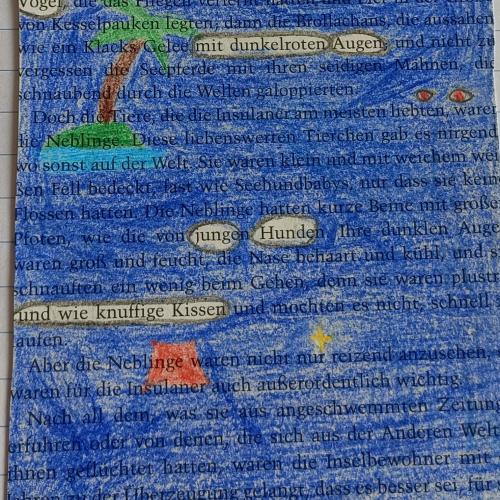 Vögel, die das Fliegen verlernt hatten und Eier in der
von Kesselpauken legten; dann die Brollachans, die aussahen
wie ein Klacks Gelee mit dunkelroten Augen, und nicht zu
vergessen die Seepferde mit ihren seidigen Mähnen, die
schnaubend durch die Wellen galoppierten.
Doch die Tiere, die die Insulaner am meisten liebten, waren
die Neblinge. Diese liebenswerten Tierchen gab es nirgend
wo sonst auf der Welt. Sie waren klein und mit weichem wei
ßen Fell bedeckt, fast wie Seehundbabys, nur dass sie keine
Flossen hatten. Die Neblinge hatten kurze Beine mit große
Pfoten, wie die von jungen Hunden. Ihre dunklen Auge
waren groß und feucht, die Nase behaart und kühl, und s
schnauften ein wenig beim Gehen, denn sie waren plustri
und wie knuffige Kissen und mochten es nicht, schnell
laufen.
Aber die Neblinge waren nicht nur reizend anzusehen,
waren für die Insulaner auch außerordentlich wichtig.
Nach all dem, was sie aus angeschwemmten Zeitung
erfuhren oder von denen, die sich aus der Anderen Welt
ihnen geflüchtet hatten, waren die Inselbewohner mit
zu der Überzeugung gelangt, dass es besser sei, für